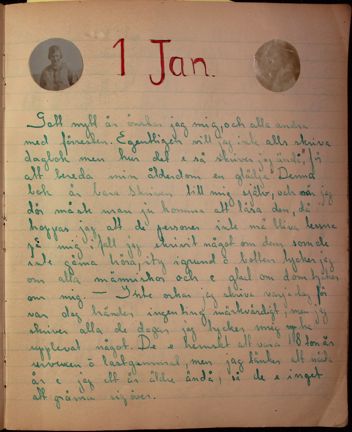 1 Jan.
Gott nytt år önskar jag mig, och alla andra
med föresten. Egentligen vill jag inte alls skriva
dagbok men hur det e så skriver jag ändå, "för
att bereda min ålderdom en glädje". Denna
bok är bara skriven till mig själv, och när jag
dör måste man ju komma att läsa den, då
hoppas jag, att de personer inte må bliva ledsna
på mig, ifall jag skrivit något om dem, som de
inte gärna höra, ty i grund o botten tycker jag
om alla människor och e glad om de tycker
om mig. — Inte orkar jag skriva varje dag, för
var dag händer ingenting märkvärdigt, men jag
skriver alla de dagar jag tycker mig ha
upplevat något. De e hemskt att vara 18 ton år
o lastgammal, men jag tänker att nästa
år e jag ett år äldre ändå, så de e inget
att gräma sig över.